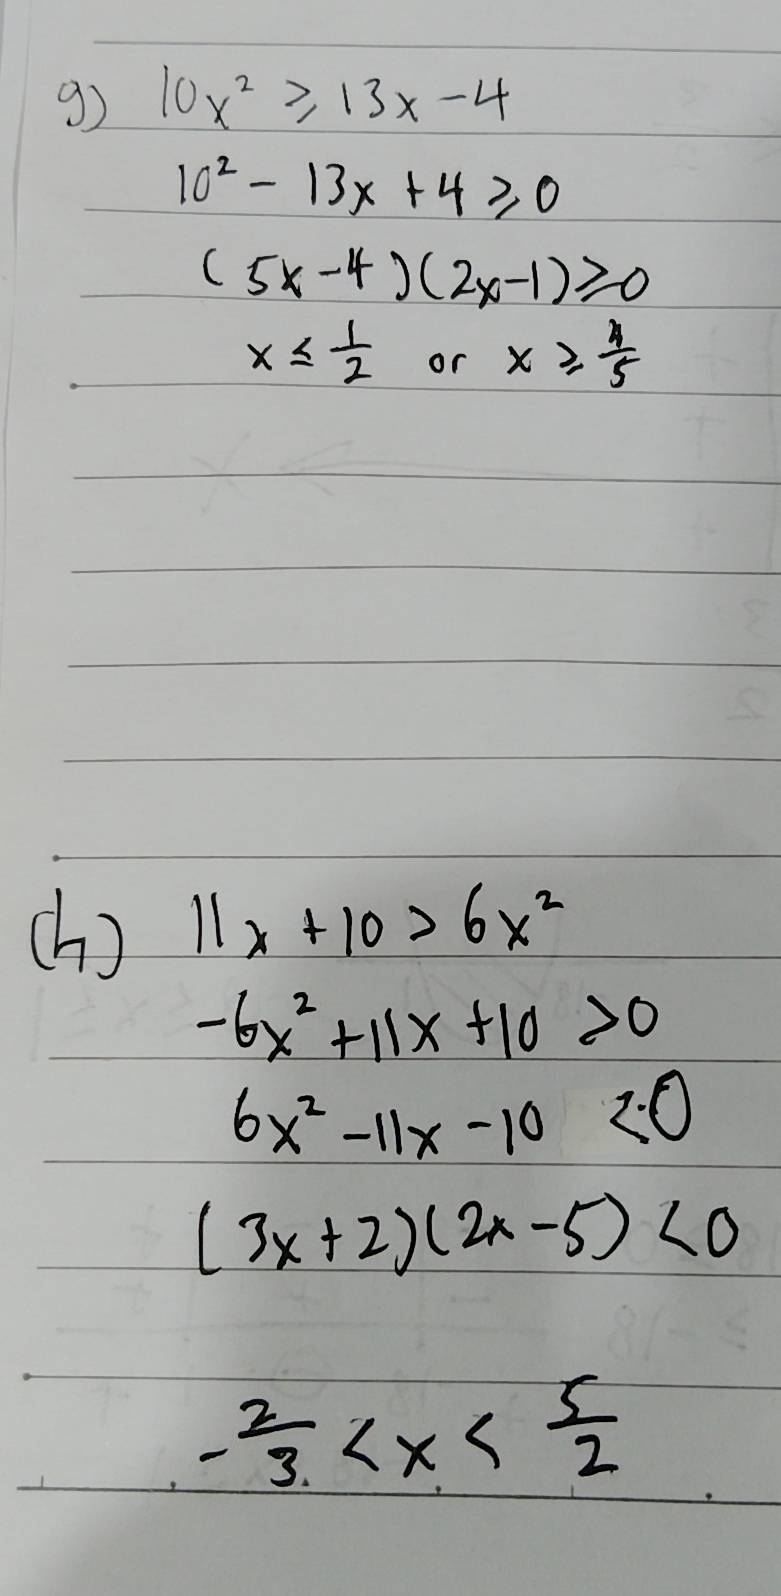 g) 10x² ⩾ 13x - 4
10² - 13x + 4 ⩾ 0
(5x-4)(2x-1) ⩾ 0
x ≤ 1/2 or x ⩾ 4/5
(h) 11x + 10 > 6x²
-6x² + 11x + 10 > 0
6x² - 11x - 10 < 0
(3x+2)(2x-5) < 0
-2/3 < x < 5/2